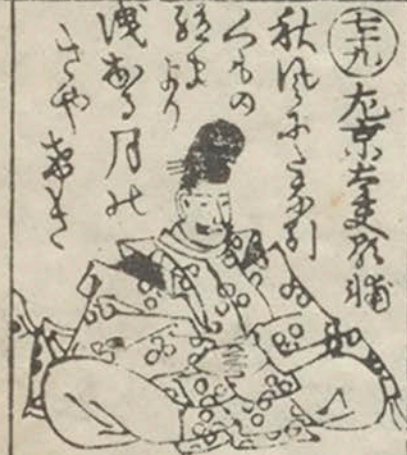 七十九
左京大夫顕輔
秋風にたな引
くもの
絶まより
洩出る月の
さやけさ